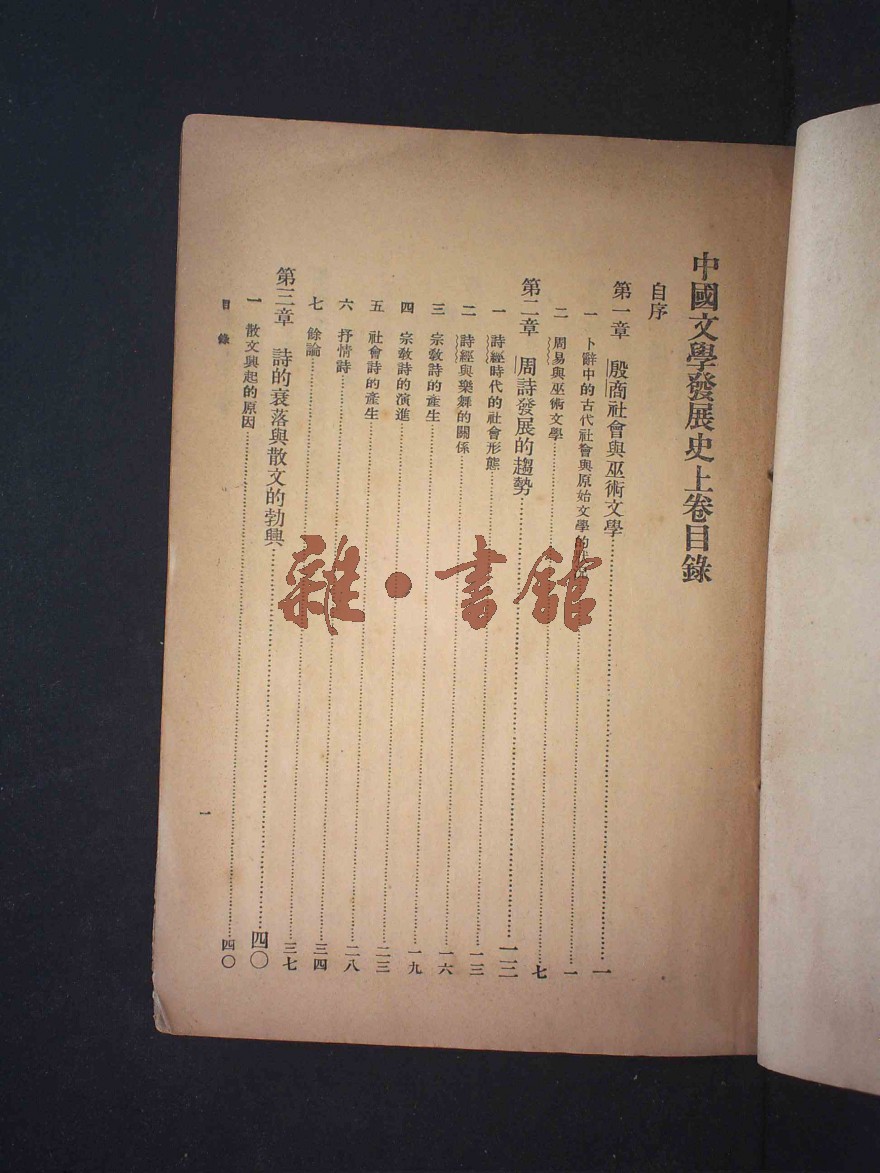 中國文學發展史上卷目錄
自序
第一章 殷商社會與巫術文學……一
一 卜辭中的古代社會與原始文學的……一
二 周易與巫術文學……七
第二章 周詩發展的趨勢……一三
一 詩經時代的社會形態……一三
二 詩經與樂舞的關係……一六
三 宗教詩的產生……一九
四 宗教詩的演進……二三
五 社會詩的產生……二八
六 抒情詩……三四
七 餘論……三七
第三章 詩的衰落與散文的勃興……四〇
一 散文興起的原因……四〇
目錄
一
雜·書館